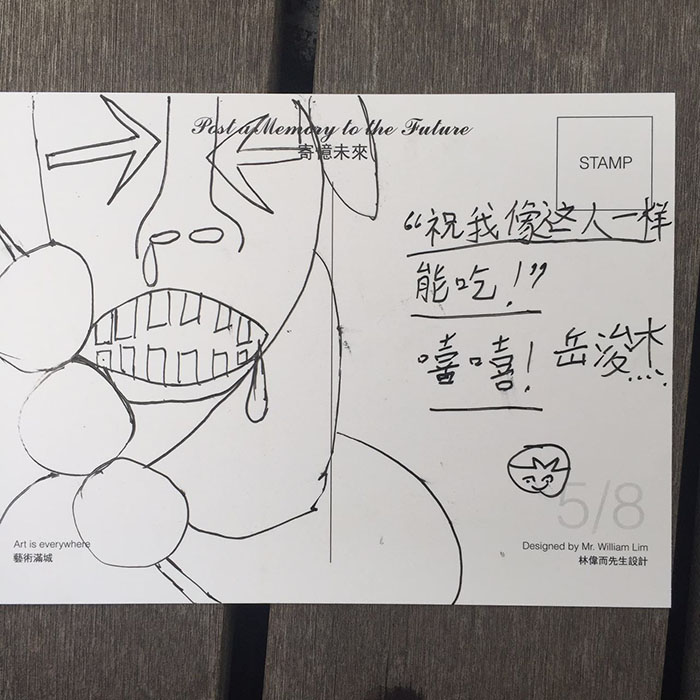 Post a Memory to the Future
寄憶未來
STAMP
“祝我像这人一样
能吃！”
嘻嘻！
岳浚木...
5/8
Art is everywhere
藝術滿城
Designed by Mr. William Lim
林偉而先生設計